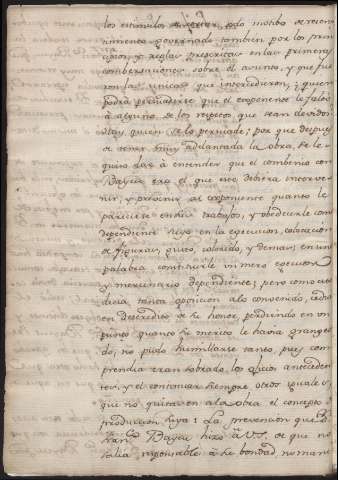 los estimulos de honor, odo motibo de recono
cimiento governado tambien por los prin
cipios y reglas prescritas en las primeras
combersaciones sobre el asunto, y que fue
ron las unicas que intercedieron; ¿quien
podrá persuadirse que el exponente le faltó
a alguno de los respetos que sean devidos
ólay quien se lo persuade; por que despues
de tener muy adelantada la obra, se le
quiso dar á entender que el combenio con
Bayeu era el que este debiera interve
nir, y prevenir al exponente quanto le
pareciese en sus trabajos, y obedecerle como
dependiente suyo en la egecucion, colocacion
de figuras, gusto, colorido, y demas; en una
palabra constituirle un mero egecutor
y mercenario dependiente; pero como esto
decia tanta oposicion alo convenido, cedia
en descredito de su honor, perdiendo en un
punto quanto su merito le havia grangea
do, no pudo humillarse tanto, pues com
prendia eran sobrado, los oficios anteceden
tes, y el continuar siempre otros iguales
que no quitaran ala obra el concepto de
produccion suya: La prevencion que D.
Fran.co Bayeu hizo á V.S. de que no
salia responsable á su bondad, no mani